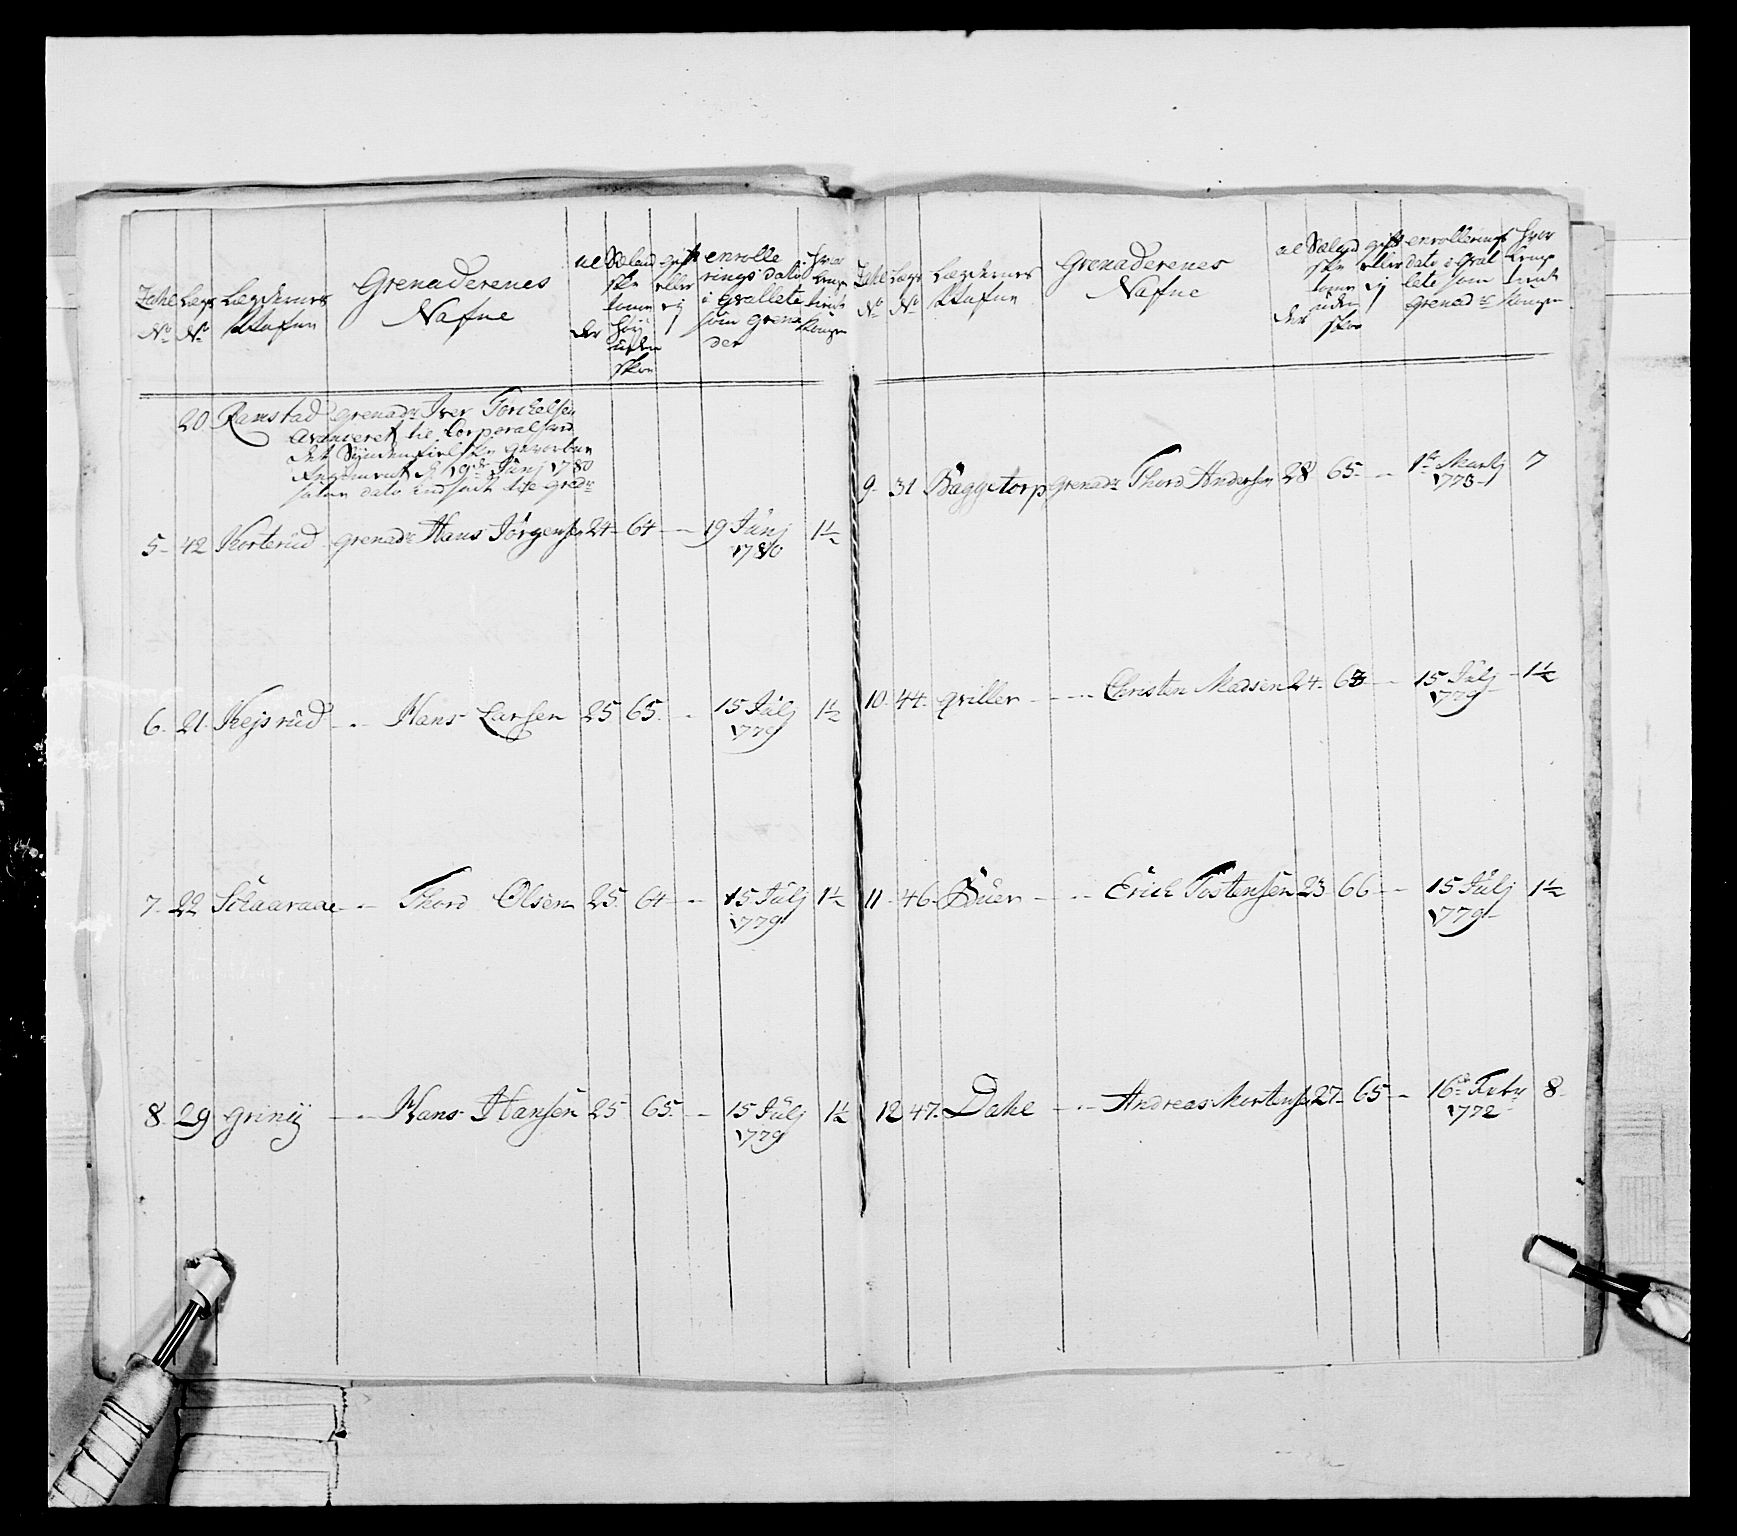 Zahl No
Lægs No
Lægdernes Nafne
Grenaderenes
Nafne
alder
Sælandske tomer høy uden skoe
gift eller ej
enrollerings dato i qvallete som Grenader
hvor længe tient Kongen
20 Ramstad grenadr Iver Torchelsen
avanceret til Corporal ved
det Syndenfielske gevorbne
Regiment d 19de Junj 1780
samme dato indsadt til gredr
5 42 Korterud grenadr Hans Jørgensen 24 64 - 19 Junj 1780 1½
6 21 Kejsrud - - Hans Larsen 25 65 - 15 Julj 1779 1½
7 22 Schaaraae - - Thord Olsen 25 64 - 15 Julj 1779 1½
8 29 Grinij - - Hans Hansen 25 65 - 15 Julj 1779 1½
Zahl No
Lægs No
Lægdernes Nafne
Grenaderenes
Nafne
alder
Sælandske tomer uden skoe
gift eller ej
enrollerings dato i qvallete som grenadr
hvor længe tient Kongen
9 31 Baggetorp grenadr Thord Andersen 28 65 - 1te Martj 1773 7
10 44 qviller - - Christen Madsen 24 63 - 15 Julj 1779 1½
11 46 Buer - - Erich Tostensen 23 66 - 15 Julj 1779 1½
12 47 Dahl - - Andreas Mortensen 27 65 - 16de Febr 1772 8